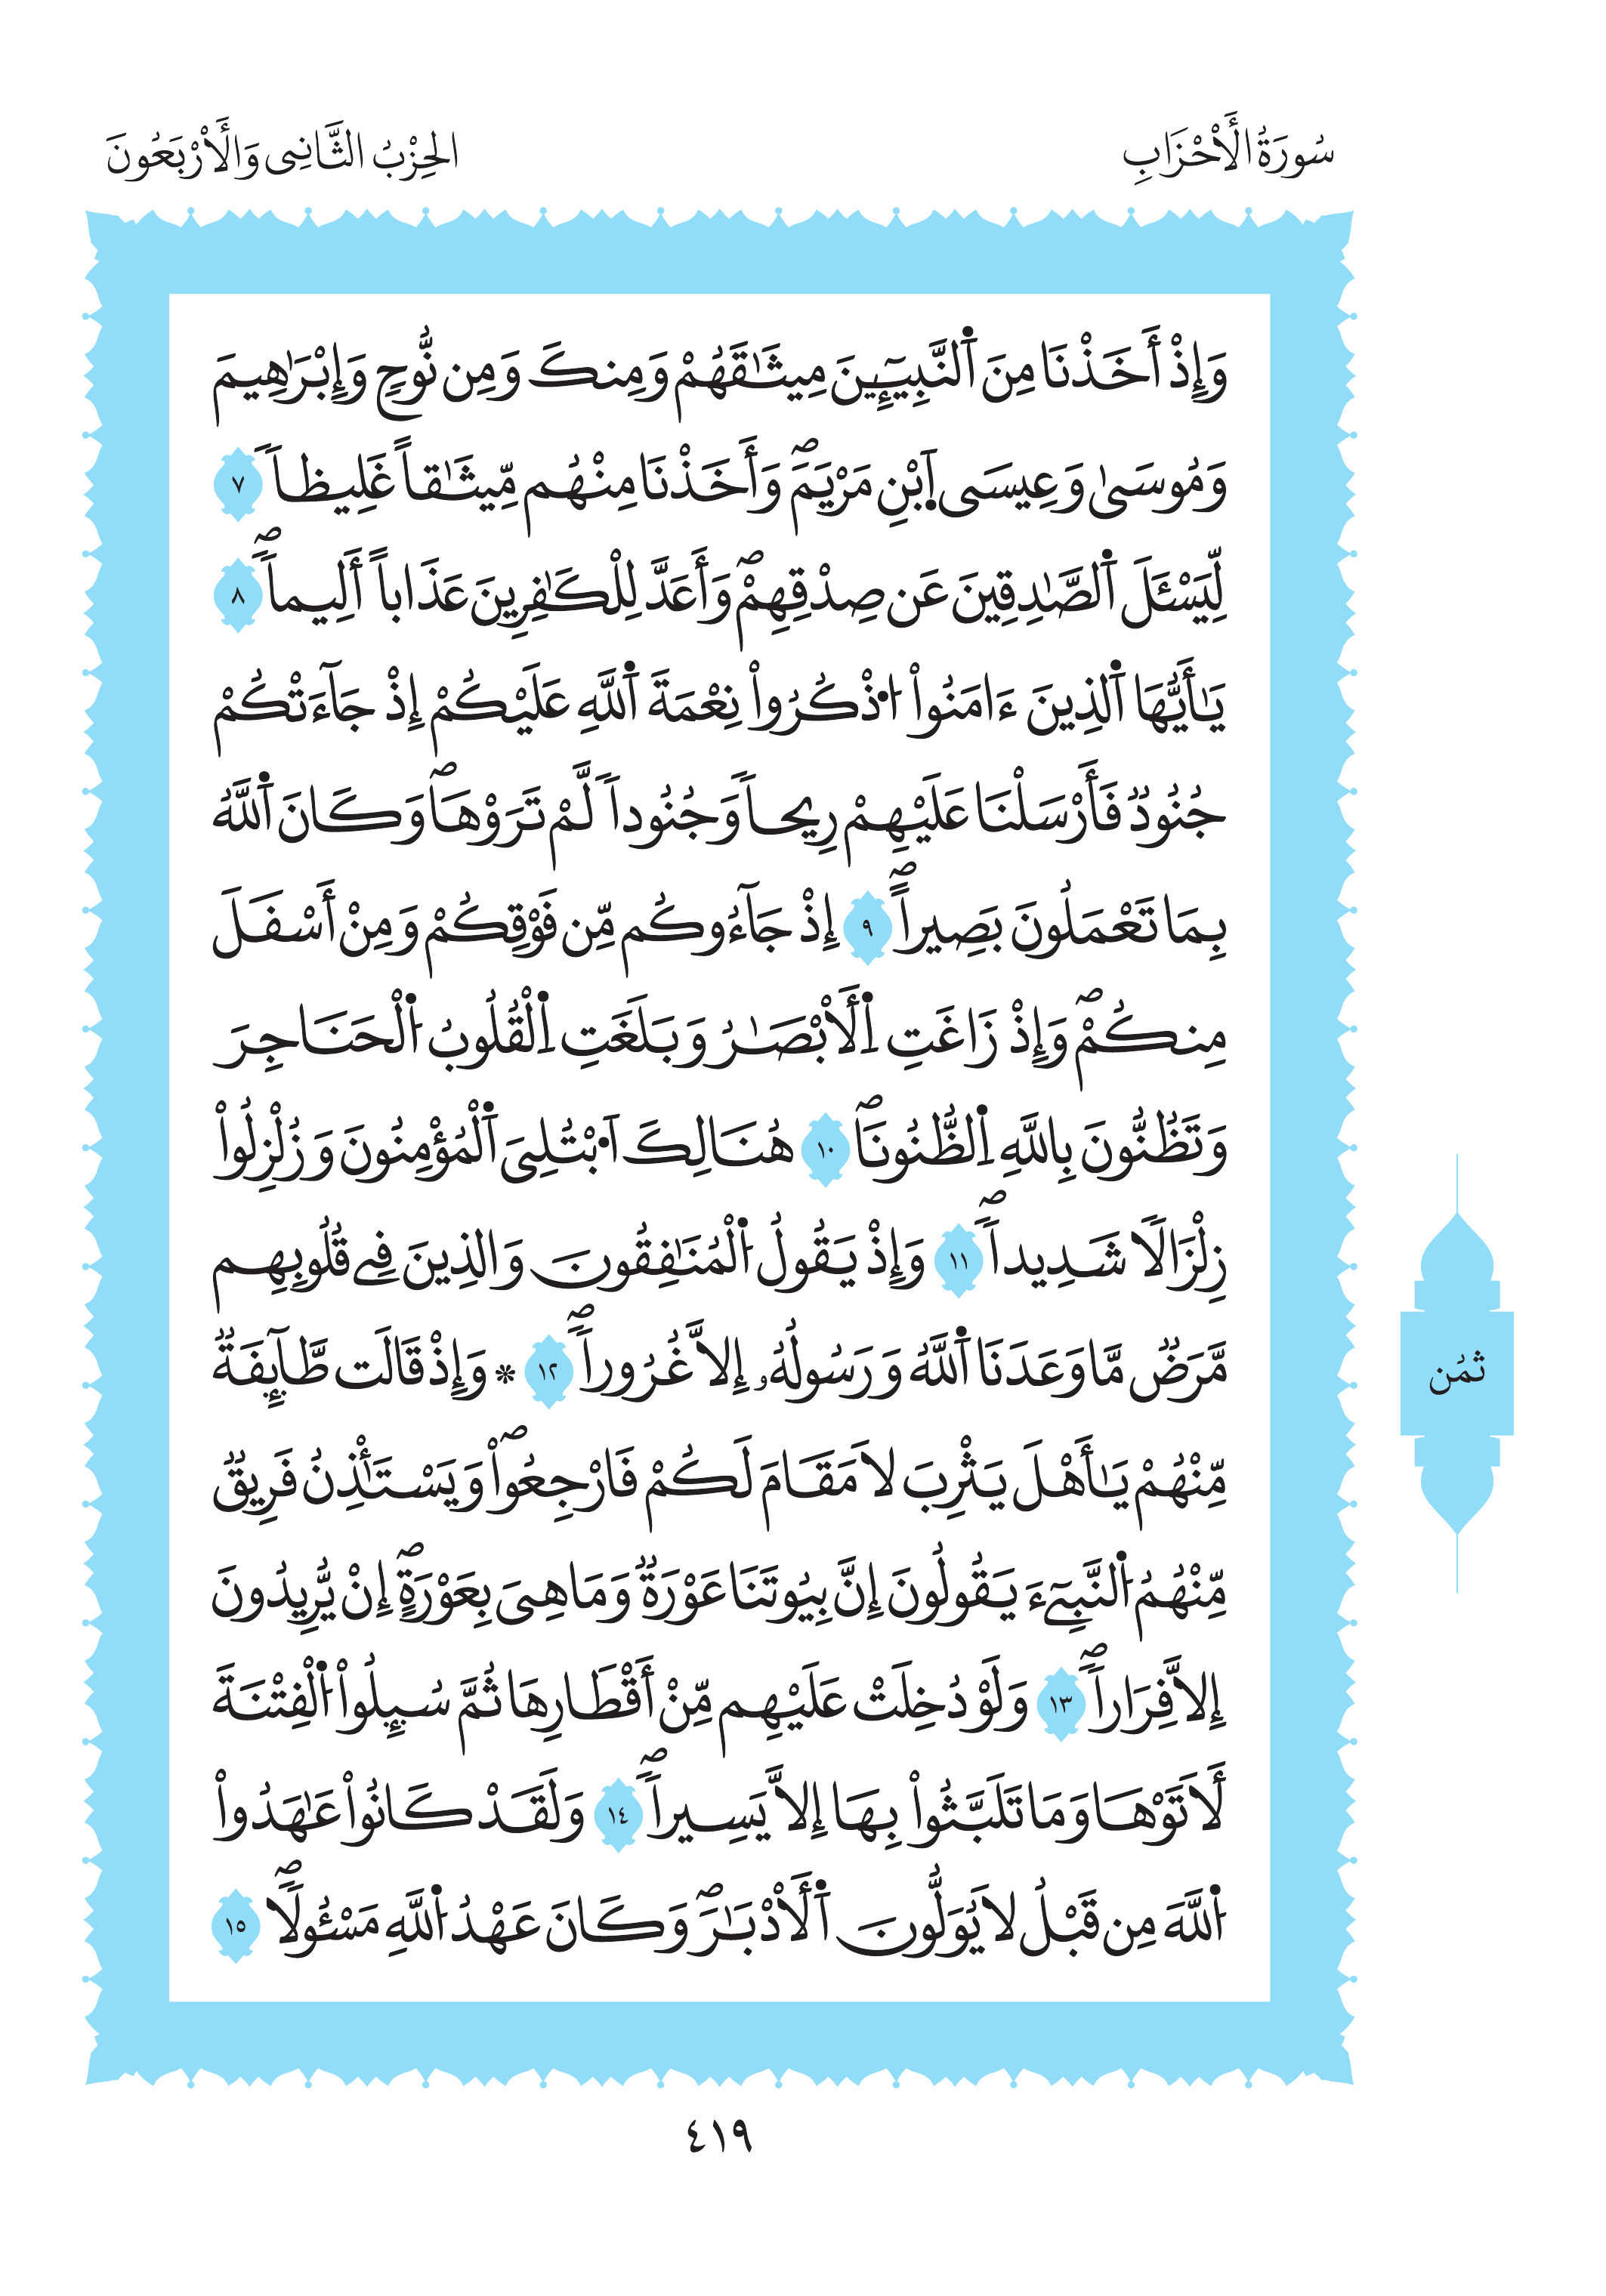 سُورَةُ الْأَحْزَابِ
الحِزْبُ الثَّانِى وَالْأَرْبَعُونَ
وَإِذْ أَخَذْنَا مِنَ اَ۬لنَّبِيٓـِٕينَ مِيثَٰقَهُمْ وَمِنكَ وَمِن نُّوحٖ وَإِبْرَٰهِيمَ
وَمُوسَىٰ وَعِيسَى اَ۪بْنِ مَرْيَمَۖ وَأَخَذْنَا مِنْهُم مِّيثَٰقاً غَلِيظاٗ ٧
لِّيَسْـَٔلَ اَ۬لصَّٰدِقِينَ عَن صِدْقِهِمْۖ وَأَعَدَّ لِلْكَٰفِرِينَ عَذَاباً أَلِيماٗۖ ٨
يَٰأَيُّهَا اَ۬لذِينَ ءَامَنُواْ اُ۟ذْكُرُواْ نِعْمَةَ اَ۬للَّهِ عَلَيْكُمْ إِذْ جَآءَتْكُمْ
جُنُودٞ فَأَرْسَلْنَا عَلَيْهِمْ رِيحاٗ وَجُنُوداٗ لَّمْ تَرَوْهَاۖ وَكَانَ اَ۬للَّهُ
بِمَا تَعْمَلُونَ بَصِيراًۖ ٩ إِذْ جَآءُوكُم مِّن فَوْقِكُمْ وَمِنْ أَسْفَلَ
مِنكُمْۖ وَإِذْ زَاغَتِ اِ۬لْأَبْصَٰرُ وَبَلَغَتِ اِ۬لْقُلُوبُ اُ۬لْحَنَاجِرَ
وَتَظُنُّونَ بِاللَّهِ اِ۬لظُّنُونَاۖ ١٠ هُنَالِكَ اَ۟بْتُلِىَ اَ۬لْمُؤْمِنُونَ وَزُلْزِلُواْ
زِلْزَالٗا شَدِيداٗۖ ١١ وَإِذْ يَقُولُ اُ۬لْمُنَٰفِقُونَ وَالذِينَ فِے قُلُوبِهِم
مَّرَضٞ مَّا وَعَدَنَا اَ۬للَّهُ وَرَسُولُهُۥ إِلَّا غُرُوراٗۖ ١٢ * وَإِذْ قَالَت طَّآئِفَةٞ
مِّنْهُمْ يَٰأَهْلَ يَثْرِبَ لَا مَقَامَ لَكُمْ فَارْجِعُواْۖ وَيَسْتَـْٔذِنُ فَرِيقٞ
مِّنْهُمُ اُ۬لنَّبِےٓءَ يَقُولُونَ إِنَّ بِيُوتَنَا عَوْرَةٞ وَمَا هِىَ بِعَوْرَةٍۖ إِنْ يُّرِيدُونَ
إِلَّا فِرَاراٗۖ ١٣ وَلَوْ دُخِلَتْ عَلَيْهِم مِّنْ أَقْطَارِهَا ثُمَّ سُئِلُواْ اُ۬لْفِتْنَةَ
لَأَتَوْهَا وَمَا تَلَبَّثُواْ بِهَا إِلَّا يَسِيراٗۖ ١٤ وَلَقَدْ كَانُواْ عَٰهَدُواْ
اُ۬للَّهَ مِن قَبْلُ لَا يُوَلُّونَ اَ۬لْأَدْبَٰرَۖ وَكَانَ عَهْدُ اُ۬للَّهِ مَسْـُٔولٗاۖ ١٥
ثمُن
٤١٩